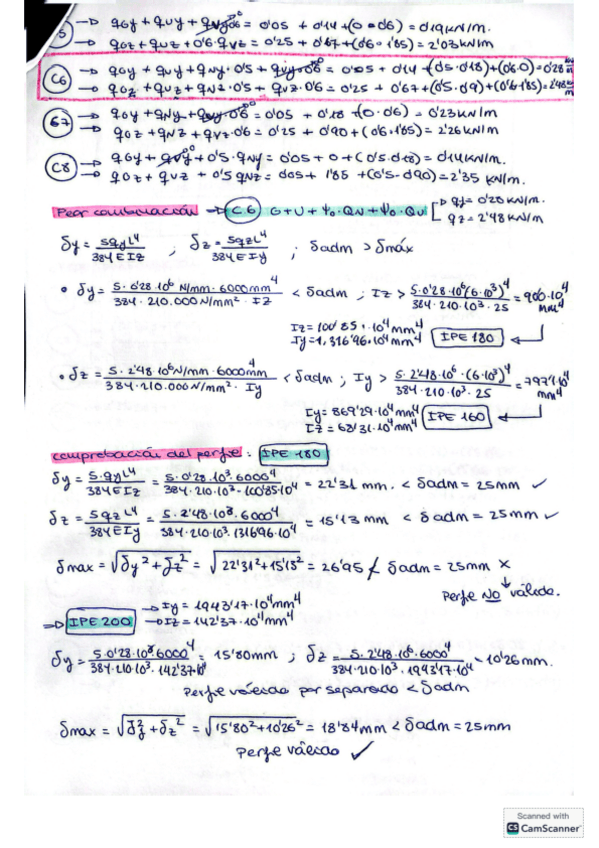 5 → qGy + qUy + qVy·06 = 0'05 + 0'14 + (0·0'6) = 0'19 KN/m.
→ qGz + qUz + 0'6·qVz = 0'25 + 0'67 + (0'6·1'85) = 2'03 KN/m
C6 → qGy + qUy + qNy·0'5 + qVy·06 = 0'05 + 0'14 + (0'5·0'18) + (0'6·0) = 0'28 KN/m
→ qGz + qUz + qNz·0'5 + qVz·0'6 = 0'25 + 0'67 + (0'5·0'9) + (0'6·1'85) = 2'48 KN/m
C7 → qGy + qNy + qVy·06 = 0'05 + 0'18 + (0·0'6) = 0'23 KN/m
→ qGz + qNz + qVz·06 = 0'25 + 0'90 + (0'6·1'85) = 2'26 KN/m
C8 → qGy + qVy + 0'5·qNy = 0'05 + 0 + (0'5·0'18) = 0'14 KN/m.
→ qGz + qVz + 0'5 qNz = 0'05 + 1'85 + (0'5·0'90) = 2'35 KN/m.
Peor combinación → C.6 G + U + Ψ0·QN + Ψ0·QV
qy = 0'28 KN/m.
qz = 2'48 KN/m
δy = 5qyL⁴/384EIz ; δz = 5qzL⁴/384EIy ; δadm > δmáx
• δy = 5·0'28·10⁶ N/mm·6000mm⁴/384·210.000N/mm²·Iz < δadm ; Iz > 5·0'28·10⁶(6·10³)⁴/384·210·10³·25 = 900·10⁴ mm⁴
Iz = 100'85·10⁴ mm⁴
Iy = 1.316'96·10⁴ mm⁴ IPE 180
• δz = 5·2'48·10⁶N/mm·6000mm⁴/384·210.000N/mm²·Iy < δadm ; Iy > 5·2'48·10⁶·(6·10³)⁴/384·210·10³·25 = 797'1·10⁴ mm⁴
Iy = 869'29·10⁴ mm⁴
Iz = 68'31·10⁴ mm⁴ IPE 160
comprobación del perfil: IPE 180
δy = 5·qyL⁴/384EIz = 5·0'28·10³·6000⁴/384·210·10³·100'85·10⁴ = 22'31 mm. < δadm = 25mm ✓
δz = 5qzL⁴/384EIy = 5·2'48·10³·6000⁴/384·210·10³·1316'96·10⁴ = 15'13 mm < δadm = 25mm ✓
δmax = √δy² + δz² = √22'31² + 15'13² = 26'95 < δadm = 25mm ×
Perfil NO válido.
→ IPE 200 → Iy = 1943'17·10⁴mm⁴
→ Iz = 142'37·10⁴mm⁴
δy = 5·0'28·10³·6000⁴/384·210·10³·142'37·10⁴ = 15'80mm ; δz = 5·2'48·10³·6000⁴/384·210·10³·1943'17·10⁴ = 10'26mm.
Perfil válido por separado < δadm
δmax = √δy² + δz² = √15'80² + 10'26² = 18'84mm < δadm = 25mm
Perfil válido ✓
Scanned with
CS CamScanner